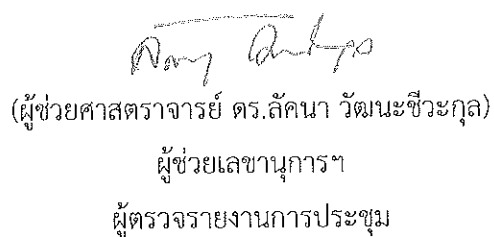 (ผู้ช่วยศาสตราจารย์ ดร.ลัคนา วัฒนะชีวะกุล)
ผู้ช่วยเลขานุการฯ
ผู้ตรวจรายงานการประชุม